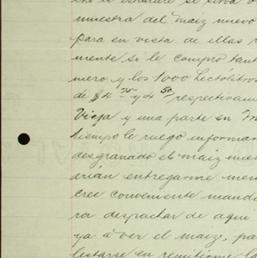 muestra del maíz nuevo
para en vista de ellas
mente si le compro tan
mero y los 1000 hectolitros
de $4.75 y 4.50 respectivam
Vieja y una parte en
tiempo le ruego informar
desgranado el maíz nuev
drían entregarme men
cree conveniente manda
ra despachar de aquí
ya á ver el maíz, pa